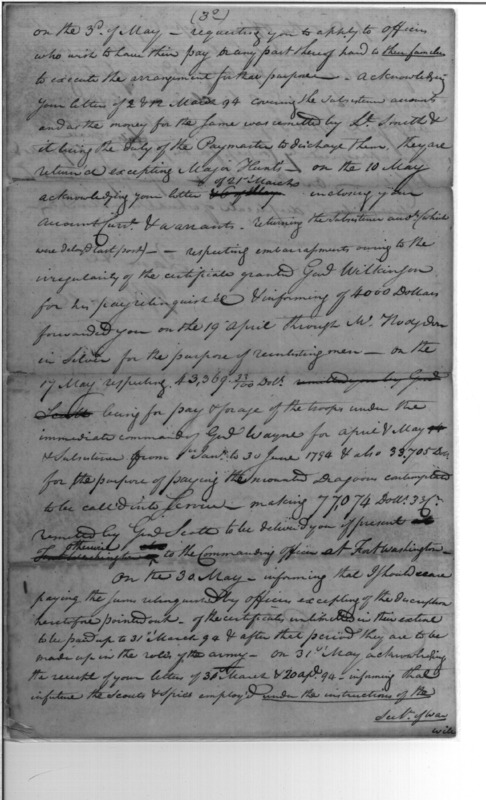 (3d)
on the 3d. of May — requesting you to apply to officers
who wish to have their pay or any part thereof hand to their families
to execute the arrangement for that purpose — Acknowledging
your letters of 2 & 12 March 94 covering the subsistence accounts
and as the money for the same was remitted by Lt. Smith &
it being the duty of the Paymaster to discharge them, they are
returned excepting Major Hunts — on the 10 May
of 21st March
acknowledging your letter inclosing your
account Curt. & warrants — returning the subsistence accts. (which
were delayd last post) — — respecting embarrassments owing to the
irregularity of the certificate granted Genl Wilkinson
for his pay relinquishd & informing of 4000 Dollars
forwarded you on the 19 April through Mr. Hodgdon
in Silver for the purpose of reinlisting men — on the
17 May respecting 43,369 33/100 Dolls. remitted you by Genl
Scott being for pay & forage of the troops under the
immediate command of Genl Wayne for April & May
& Subsistence from 1st Jany. to 30 June 1794 & also 33,705 Ds.
for the purpose of paying the mounted Dragoons contemplated
to be called into Service — making 77,074 Dolls. 33 Cts.
remitted by Genl Scott to be deliverd you if present
otherwise
Fort Washington to the Commanding Officer at Fort Washington —
On the 30 May — informing that I should cease
paying the sums relinquished by officers excepting of the discription
heretofore pointed out — of the certificates embraced in this extent
to be paid up to 31st March 94 & after that period they are to be
made up in the rolls of the army — on 31st May acknowledging
the receipt of your letters of 30 March & 20 Apl. 94 — informing that
in future the Scouts & Spies employd under the instructions of the
Secty. of War
will